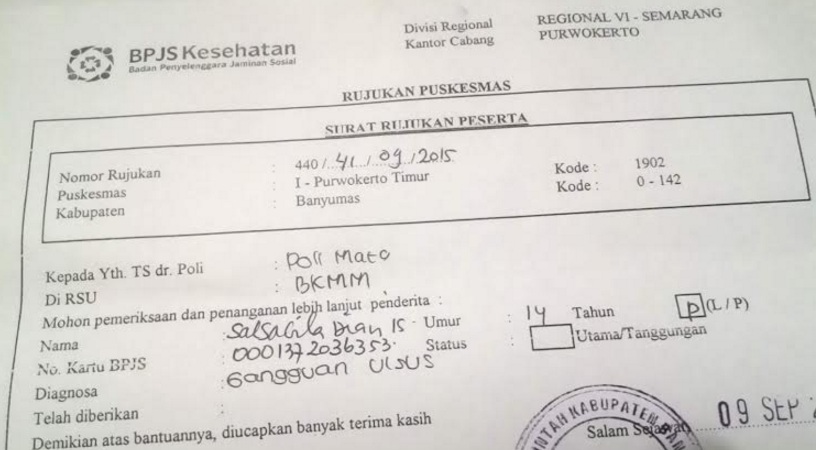 BPJS Kesehatan
Badan Penyelenggara Jaminan Sosial
Divisi Regional REGIONAL VI - SEMARANG
Kantor Cabang PURWOKERTO
RUJUKAN PUSKESMAS
SURAT RUJUKAN PESERTA
Nomor Rujukan : 440 / 41 / 09 / 2015
Puskesmas : I - Purwokerto Timur Kode : 1902
Kabupaten : Banyumas Kode : 0 - 142
Kepada Yth. TS dr. Poli : Poli Mata
Di RSU : BKMM
Mohon pemeriksaan dan penanganan lebih lanjut penderita :
Nama : Salsabila Umur : 14 Tahun P (L / P)
No. Kartu BPJS : 0001372036353. Status : Utama/Tanggungan
Diagnosa : Gangguan
Telah diberikan :
Demikian atas bantuannya, diucapkan banyak terima kasih
Salam Sejawat,
09 SEP
KABUPATEN